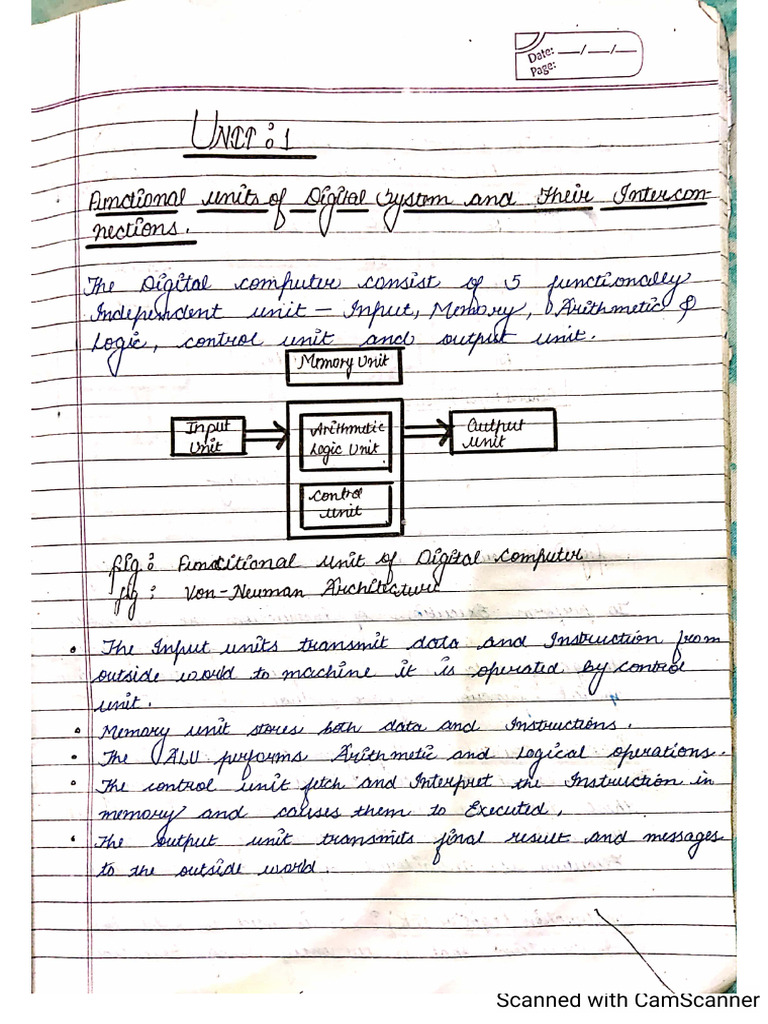 Date: __/__/__
Page:
UNIT:1
Functional units of Digital System and Their Intercon-
nections.
The Digital computer consist of 5 functionally
Independent unit - Input, Memory, Arithmetic &
Logic, control unit and output unit.
Memory Unit
Input
Unit
Arithmetic
Logic Unit
Output
Unit
Control
Unit
fig: Functional unit of Digital computer
fig: Von-Neuman Architecture
• The Input units transmit data and Instruction from
outside world to machine it is operated by control
unit.
• Memory unit stores both data and Instructions.
• The ALU performs Arithmetic and logical operations.
• The control unit fetch and Interpret the Instruction in
memory and causes them to Executed.
• The output unit transmits final result and messages
to the outside world.
Scanned with CamScanner